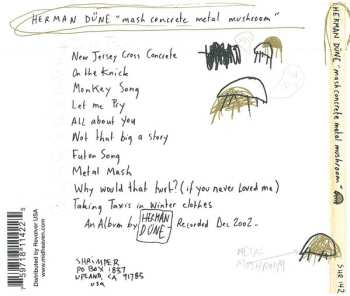 HERMAN DÜNE "mash concrete metal mushroom"
New Jersey Cross Concrete
On the Knick
Monkey Song
Let me Pry
All about you
Not that big a story
Futon Song
Metal Mash
Why would that hurt? (if you never loved me)
Taking Taxis in Winter clothes
An Album by HERMAN DÜNE Recorded Dec 2002.
SHRIMPER
PO BOX 1837
UPLAND, CA 91785
USA
METAL
MUSHROOM
7 59718 11422 5
Distributed by Revolver USA
www.midheaven.com
HERMAN DÜNE "mash concrete metal mushroom"
SHR 142